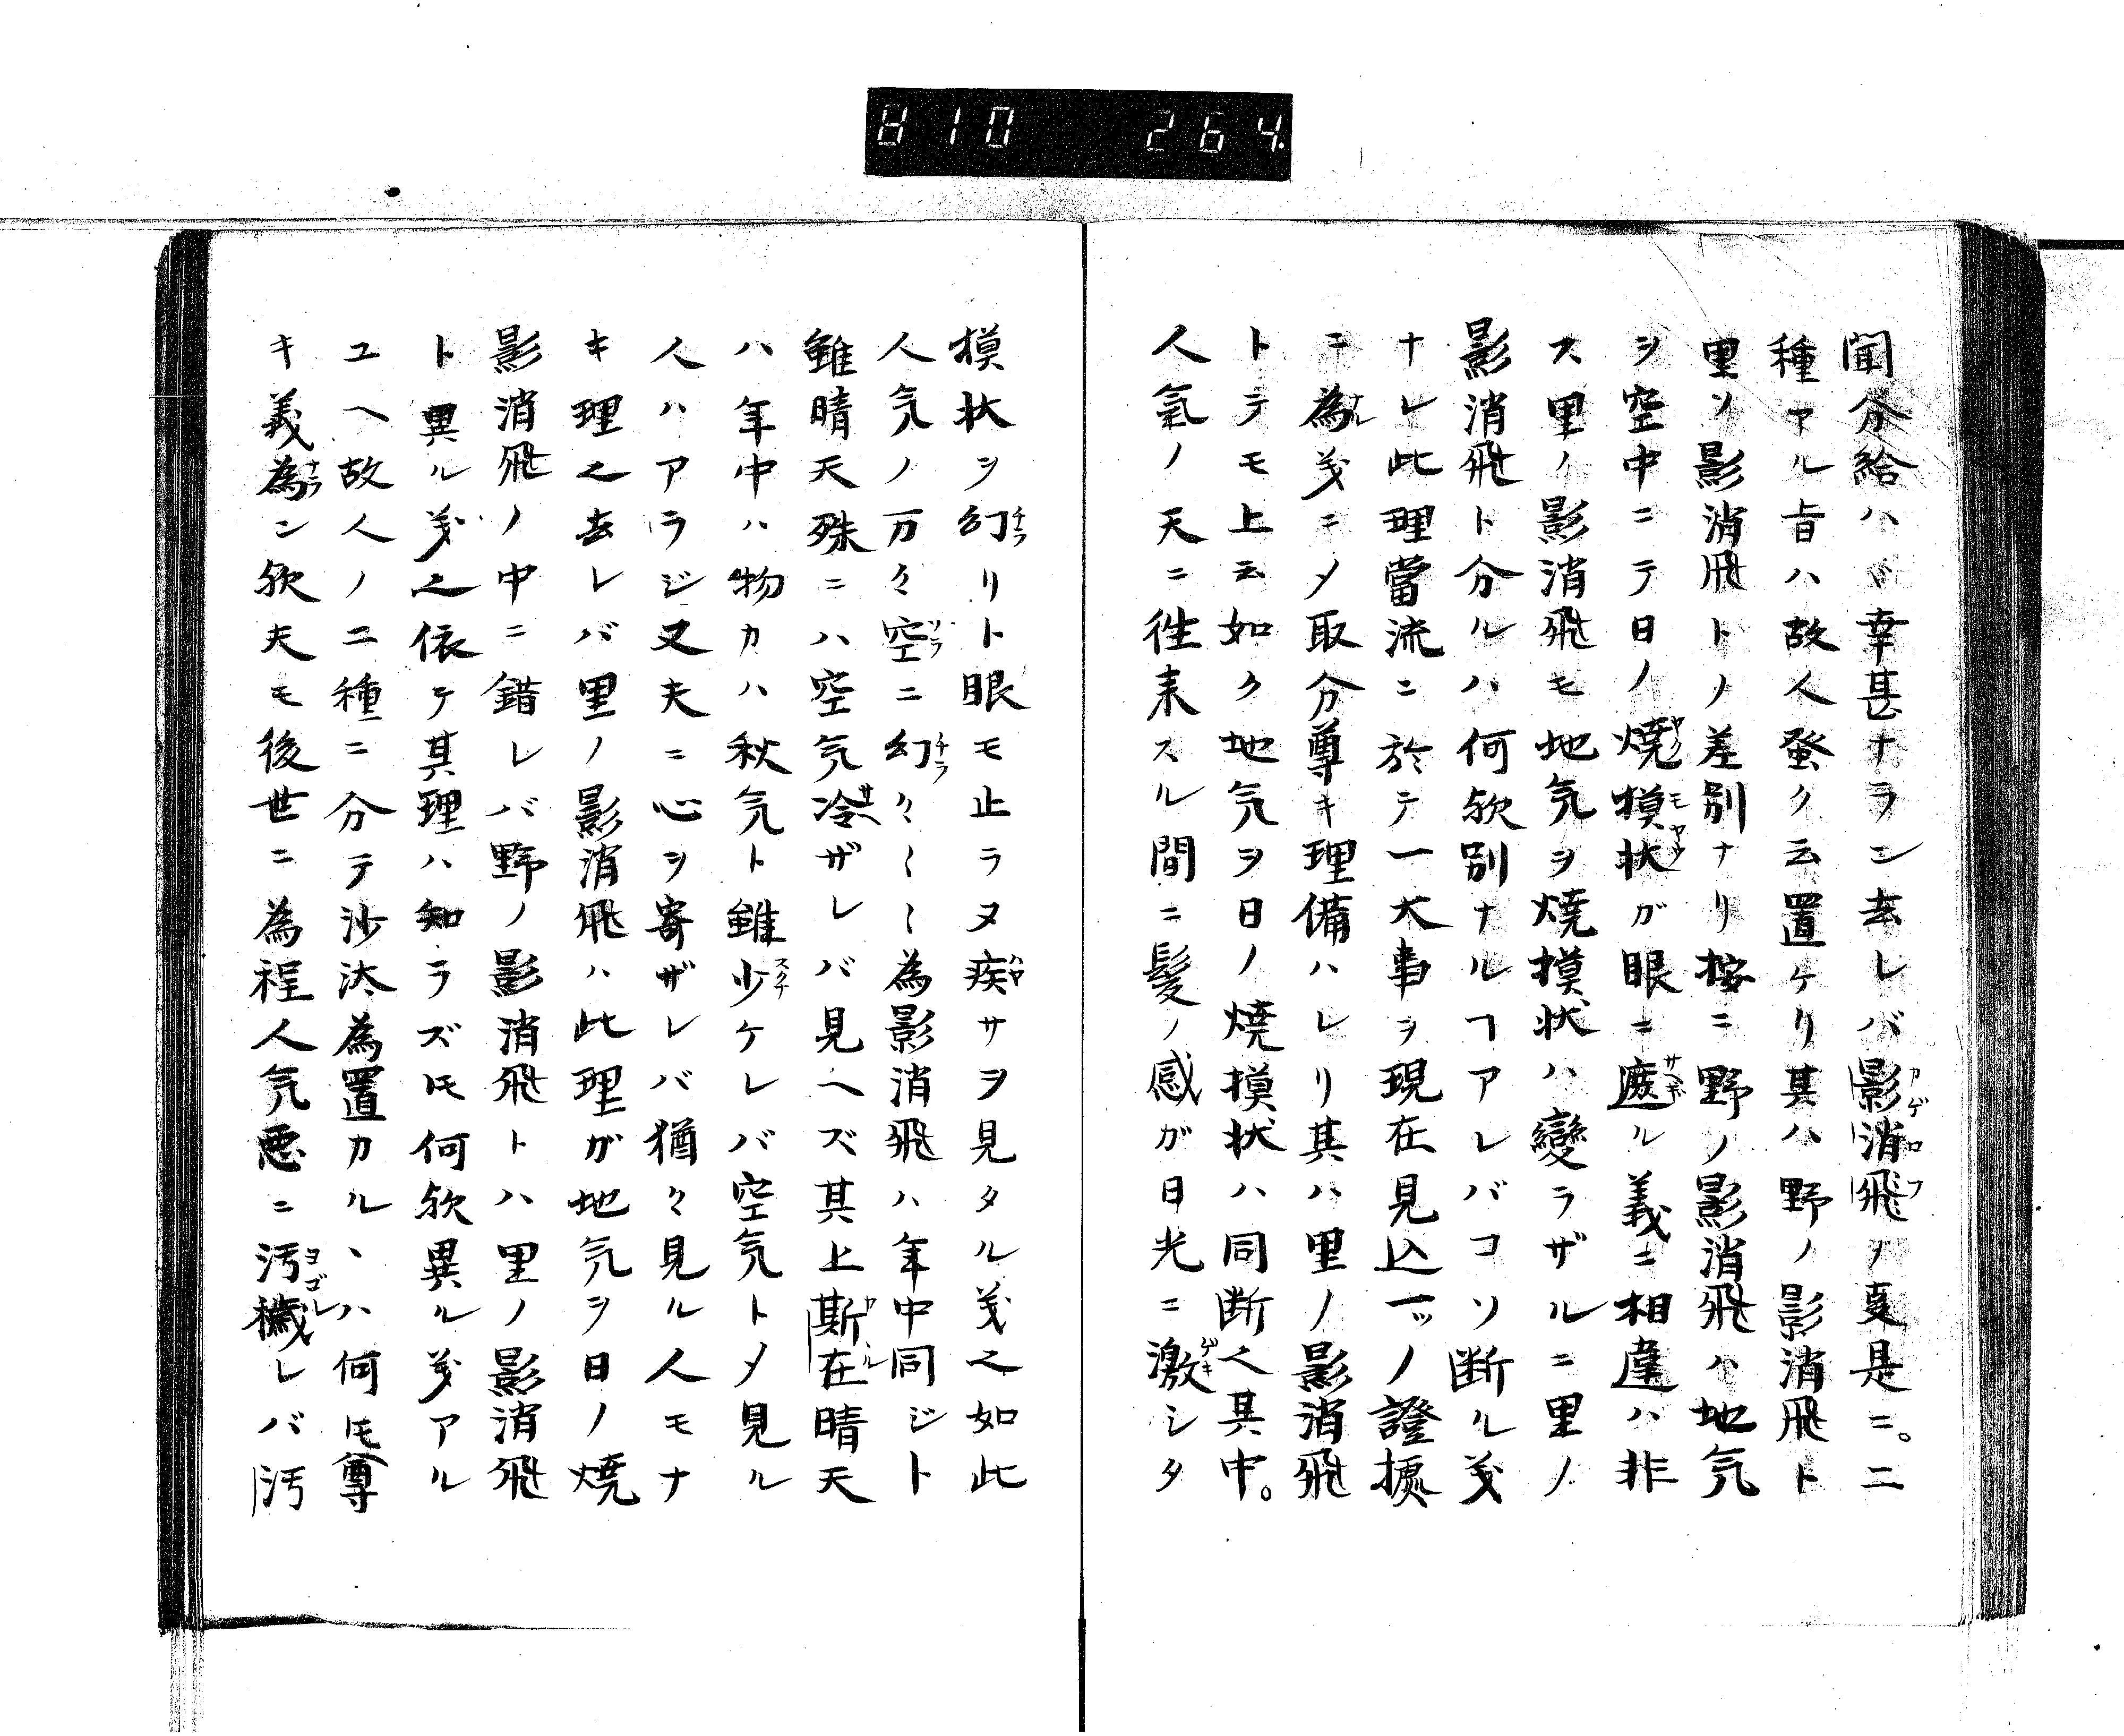 810 264.
聞分給ハヾ幸甚ナラン去レバ影消飛ノ夏是ニ。二
種アル旨ハ故人発ク云置ケリ其ハ野ノ影消飛ト
里ソ影消飛トノ差別ナリ按ニ野ノ影消飛ハ地気
ヲ空中ニテ日ノ焼摸状ガ眼ニ遮ル義ニ相違ハ非
ス里ノ影消飛モ地気ヲ焼摸状ハ變ラザルニ里ノ
影消飛ト分ルハ何欤別ナルヿアレバコソ断ル义
ナレ此理當流ニ於テ一大事ヲ現在見込一ッノ證據
ニ為义ニメ取分尊キ理備ハレリ其ハ里ノ影消飛
トテモ上云如ク地気ヲ日ノ焼摸状ハ同断也其中。
人氣ノ天ニ徃来スル間ニ髪ノ感ガ日光ニ激シタ
摸状ヲ幻リト眼モ止ラヌ疾サヲ見タル义也如此
人気ノ万々空ニ幻々〱〱為影消飛ハ年中同ジト
雖晴天殊ニハ空気冷ザレバ見ヘズ其上斯在晴天
ハ年中ハ物カハ秋気ト雖少ケレバ空気トメ見ル
人ハアラジ又夫ニ心ヲ寄ザレバ猶々見ル人モナ
キ理也去レバ里ノ影消飛ハ此理ガ地気ヲ日ノ焼
影消飛ノ中ニ錯レバ野ノ影消飛トハ里ノ影消飛
ト異ル义也依テ其理ハ知ラズ𪜈何欤異ル义アル
ユヘ故人ノ二種ニ分テ沙汰為置カルヽハ何𪜈尊
キ義為ン欤夫モ後世ニ為程人気悪ニ汚穢レバ汚